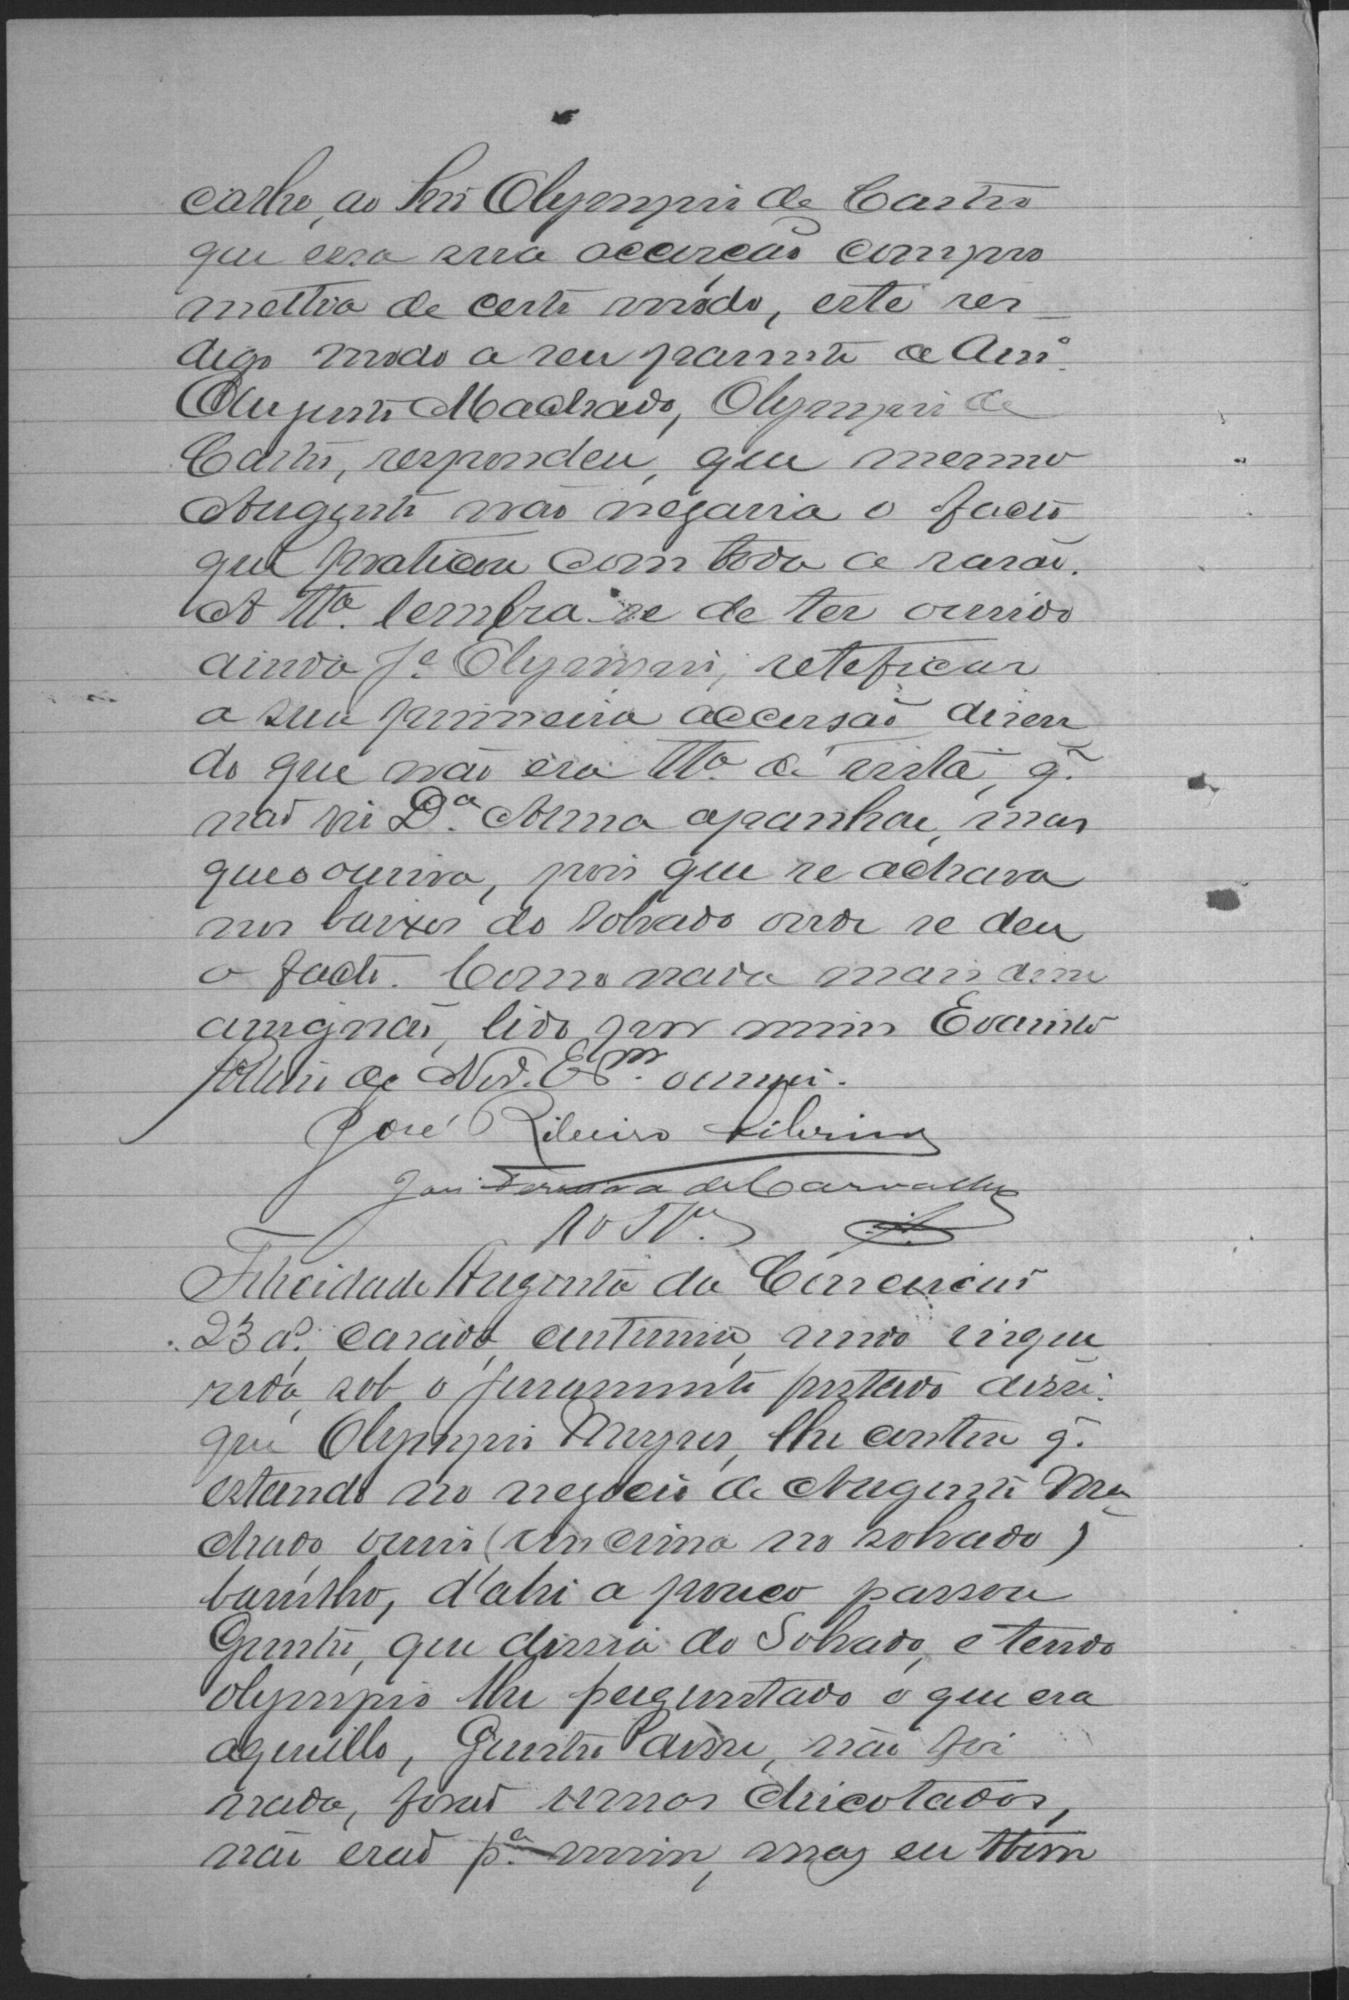 ao Snr Olympio de Castro
que essa sua accusção compro
mettia de certo modo, este ser
digo modo a seu parente a Am.º
Augusto Machado, Olympio de
Castro, respondeu, que mesmo
Augusto não negaria o facto
que praticou com toda a rasão.
A Tt.ª lembra-se de ter ouvido
ainda J.e Olympio, reteficar
a sua primeira accusão disen
do que não era Tt.ª de vista, q.
não vi D.ª Anna apanhar, mas
que o ouvira, pois que se achava
nos baixos do Sobrado onde se deu
o facto. Como nada mais disse
assignão, lido por mim Evaristo
de Esm. escrevi.
José Ribeiro Silverino
José Ferreira de Carvalho
10 Tt.
Felicidade Augusta da Conceição
23 a.º, casada, sendo inque
rida, sob o juramento prestado disse:
que Olympio lhe contou q.
estando no negocio de Augusto Ma
chado ouvio (em cima no sobrado)
barulho, d'ahi a pouco passou
que descia do Sobrado, e tendo
Olympio lhe perguntado o que era
aquillo, disse, não foi
nada, forão umas chicotadas,
não erão p.ª mim, mas eu tbem